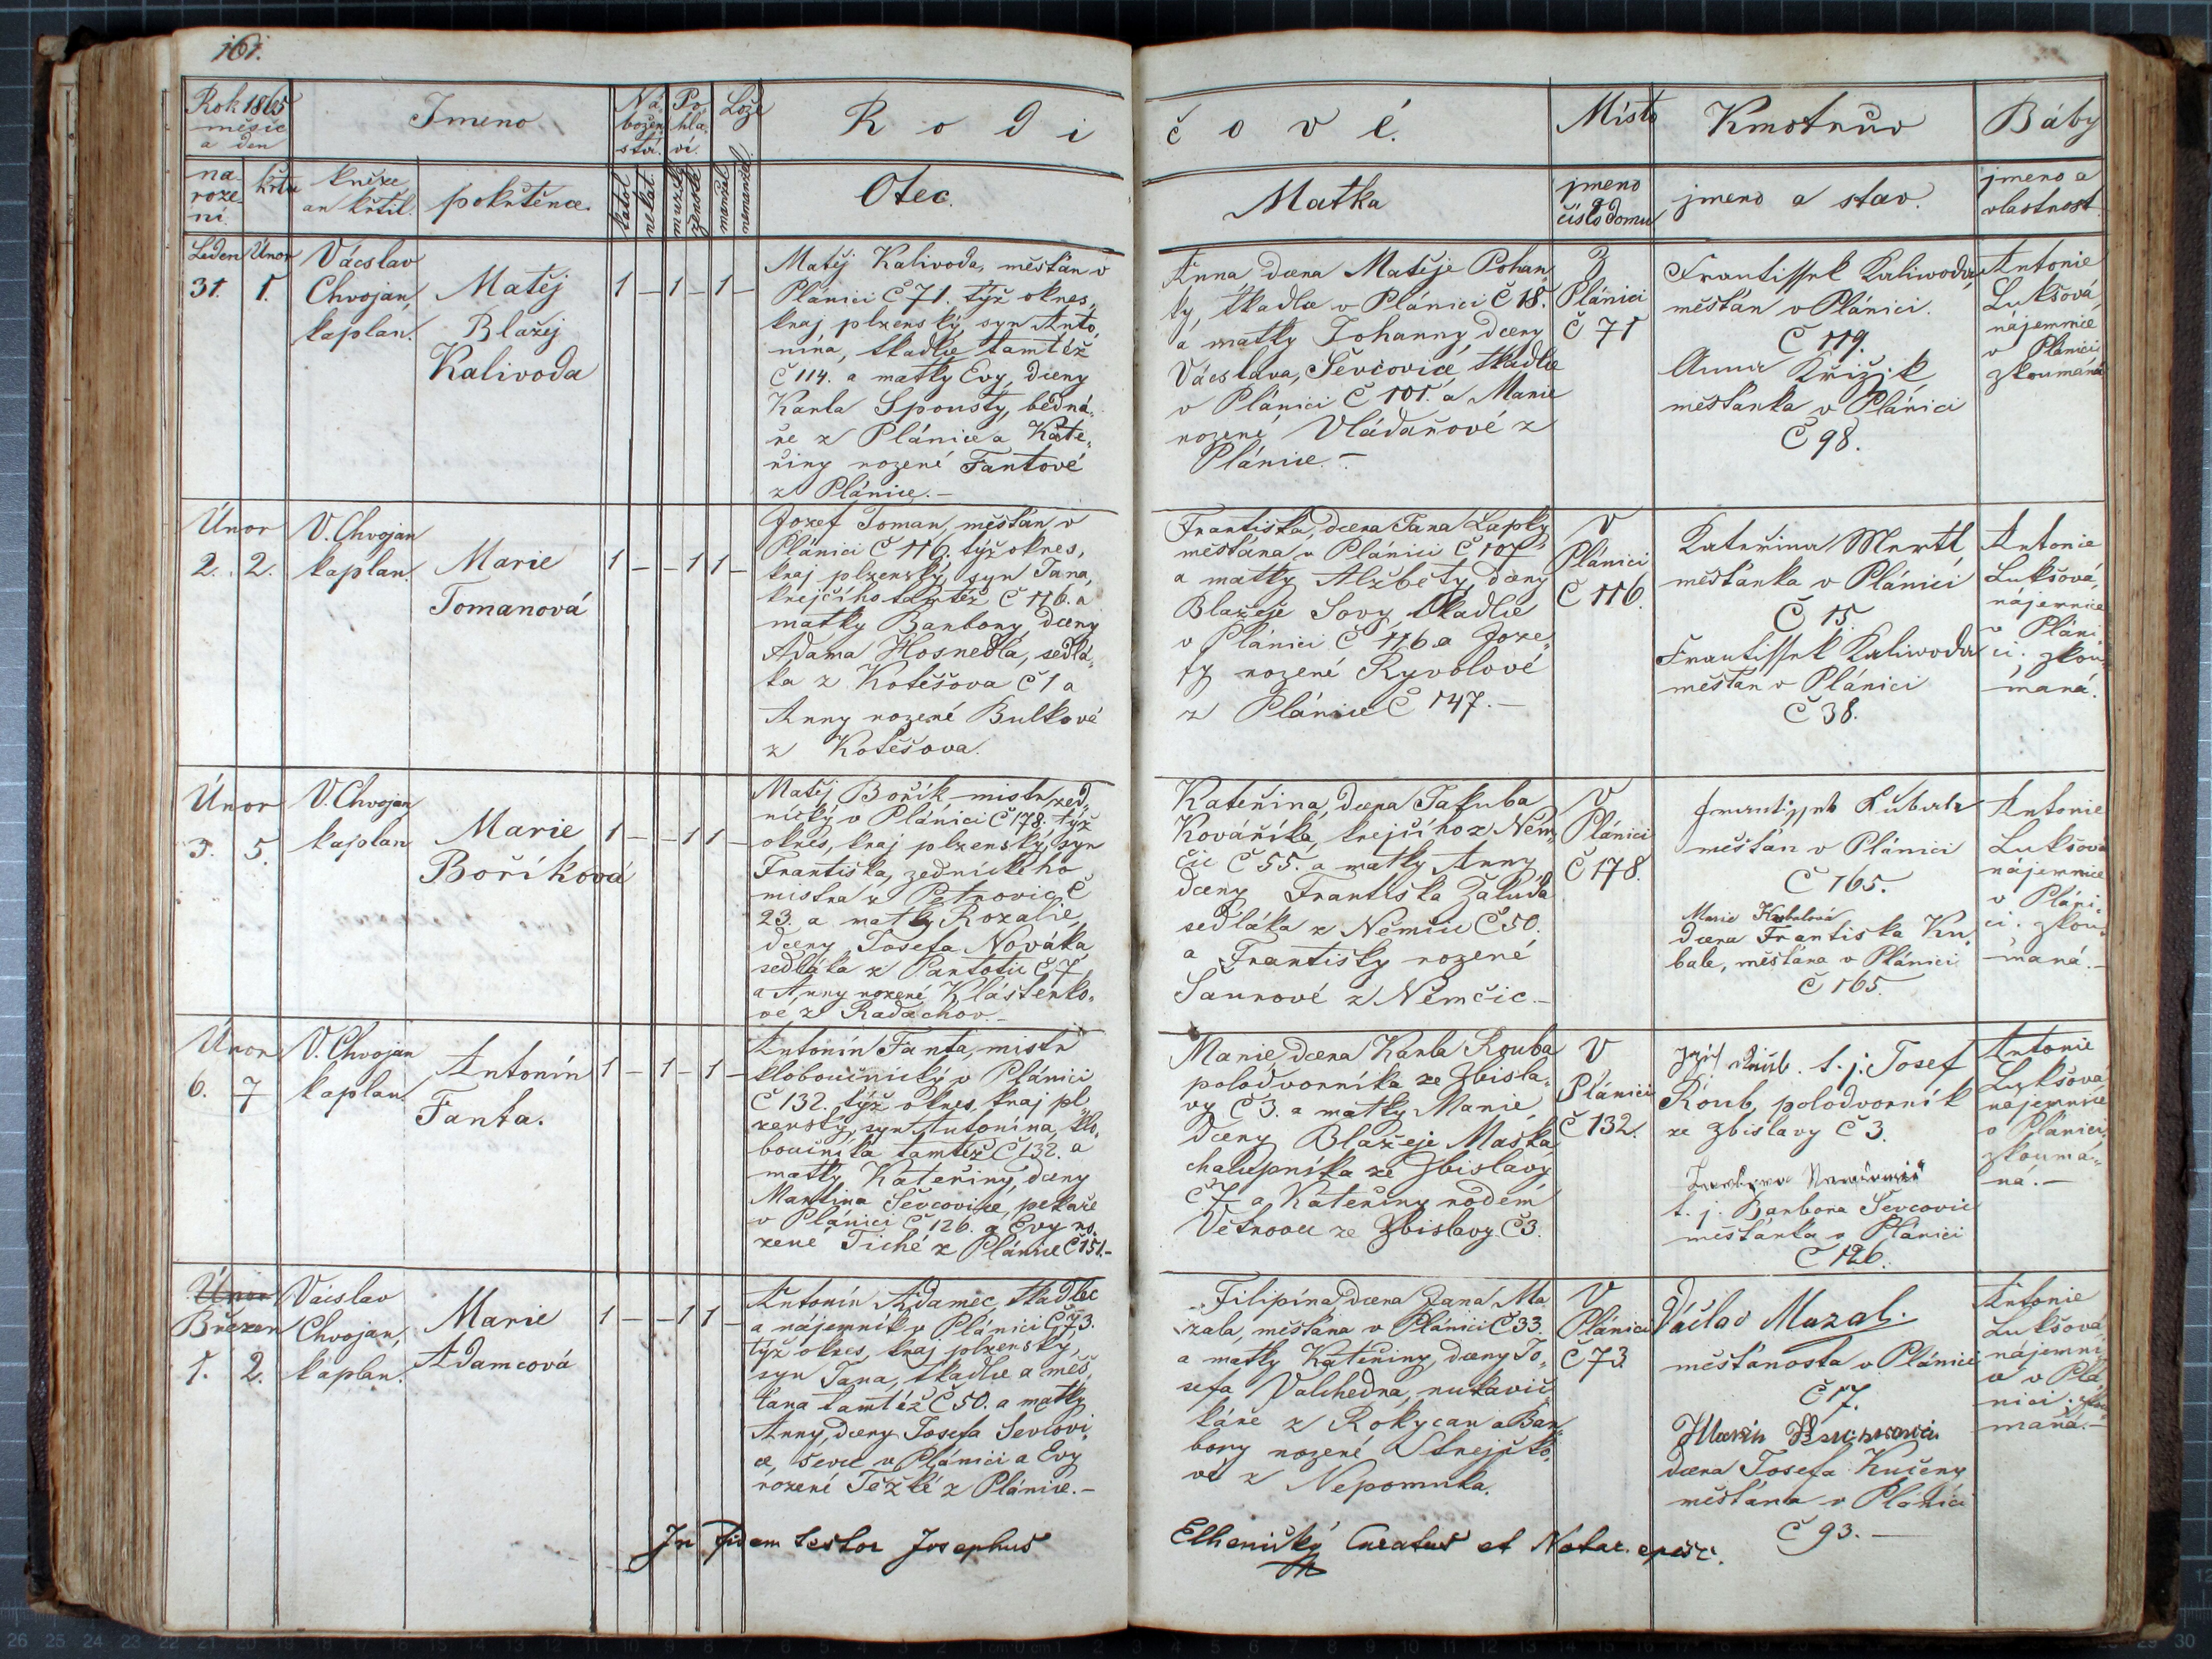 161.
Rok 1865
měsíc
a den
Jmeno
Ná-
božen
ství.
Po-
hla-
ví.
Lože
R o d i
č o v é.
Místo
Kmotrův
Báby
na-
roze-
ní.
křtu
kněze
an křtil.
pokřtěnce.
katol
nekat.
mužské
ženské
manžel
nemanžel
Otec.
Matka
jmeno
a
číslo domu
jmeno a stav.
jmeno a
vlastnost
Leden
31.
Únor
1.
Vácslav
Chvojan,
kaplan.
Matěj
Blažej
Kalivoda
1 – 1 – 1 –
Matěj Kalivoda, měšťan v
Plánici Č 71. týž okres,
kraj plzenský, syn Anto-
nína, tkadlce tamtéž
Č 114. a matky Evy, dcery
Karla Spousty, bedná-
ře z Plánice a Kate-
řiny rozené Fantové
z Plánice. –
Anna dcera Matěje Pohan
ky, tkadlce v Plánici Č 18.
a matky Johanny, dcery
Vácslava, Ševčovice, tkadlce
v Plánici Č 101. a Marie
rozené Vládařové z
Plánice. –
Plánici
Č 71
Frantissek Kaliwoda,
měšťan v Plánici.
Č 119.
Anna Křižik
měšťanka v Plánici
Č 98.
Antonie
Lukšová,
nájemnice
v Plánici,
zkoumaná
Únor
2. 2.
V. Chvojan
kaplan.
Marie
Tomanová
1 – – 1 1 –
Jozef Toman, měšťan v
Plánici Č 116. týž okres,
kraj plzenský, syn Jana,
krejčího tamtéž Č 116. a
matky Barbory, dcery
Adama Hosnedla, sedlá-
ka z Kotěšova Č 1 a
Anny rozené Bulkové
z Kotěšova.
Františka, dcera Jana Lapky
měšťana v Plánici Č 107
a matky Alžběty, dcery
Blažeje Sovy, tkadlce
v Plánici Č 116 a Joze-
fy rozené Ryvolové
z Plánice Č 147. –
V
Plánici
Č 116.
Kateřina Mertl
měšťanka v Plánici
Č 15.
Frantissek Kaliwoda
měšťan v Plánici
Č 38.
Antonie
Lukšová,
nájemnice
v Pláni-
ci. zkou-
maná.
Únor
3. 5.
V. Chvojan
kaplan
Marie
Boříková
1 – – 1 1 –
Matěj Bořík mistr zed-
nický v Plánici Č 178. týž
okres, kraj plzenský, syn
Františka, zednického
mistra z Petrovic Č
23. a matky Rozalie,
dcery Josefa Nováka
sedláka z Partotic Č 7,
a Anny rozené Klášterko-
vé z Radachov. –
Kateřina, dcera Jakuba
Kováříka, krejčího z Něm-
čic Č 55. a matky Anny
dcery Františka Žaluda
sedláka z Němčic Č 50.
a Františky rozené
Šaurové z Němčic. –
V
Plánici
Č 178.
Frantissek Kubale
měšťan v Plánici
Č 165.
Marie Kubalová
dcera Františka Ku-
bale, měšťana v Plánici
Č 165.
Antonie
Lukšová
nájemnice
v Pláni-
ci. zkou-
maná. –
Únor
6. 7
V. Chvojan
kaplan
Antonín
Fanta.
1 – 1 – 1 –
Antonín Fanta, mistr
kloboučnický v Plánici
Č 132. týž okres, kraj pl-
zenský, syn Antonína, klo-
boučníka tamtéž Č 132. a
matky Kateřiny, dcery
Martina Ševčovice, pekaře
v Plánici Č 126. a Evy ro-
zené Tiché z Plánice Č 151. –
Marie, dcera Karla Rouba
polodvorníka ze Zbisla-
vy Č 3. a matky Marie,
dcery Blažeje Maška
chalupníka ze Zbislavy
Č 7 a Kateřiny rodem
Větrovec ze Zbislavy Č 3.
V
Plánici
Č 132.
t. j. Josef
Roub, polodvorník
ze Zbislavy Č 3.
t. j. Barbora Ševcovic
měšťanka v Plánici
Č 126.
Antonie
Lukšová,
nájemnice
v Plánici,
zkoumá-
ná. –
Únor
Březen
1. 2.
Vácslav
Chvojan,
kaplan.
Marie
Adamcová
1 – – 1 1 –
Antonín Adamec, tkadlec
a nájemník v Plánici Č 73.
týž okres, kraj plzenský,
syn Jana, tkadlce a měš-
ťana tamtéž Č 50. a matky
Anny, dcery Josefa Ševčovi-
ce, ševce v Plánici a Evy
rozené Těžké z Plánice. –
Filipína dcera Jana Ma
zala, měšťana v Plánici Č 33.
a matky Kateřiny, dcery Jo-
sefa Valchedna, rukavič-
káře z Rokycan a Bar-
bory rozené Strejčko-
vé z Nepomuka.
V
Plánici
Č 73
Václav Mazal.
měšťanosta v Plánici
Č 7.
dcera Josefa Kučery
měšťana v Plánici
Č 93. –
Antonie
Lukšová,
nájemni-
ce v Plá-
nici. zkou-
maná. –
In fidem testor Josephus
Elhenický Curatus et Notar. episc.